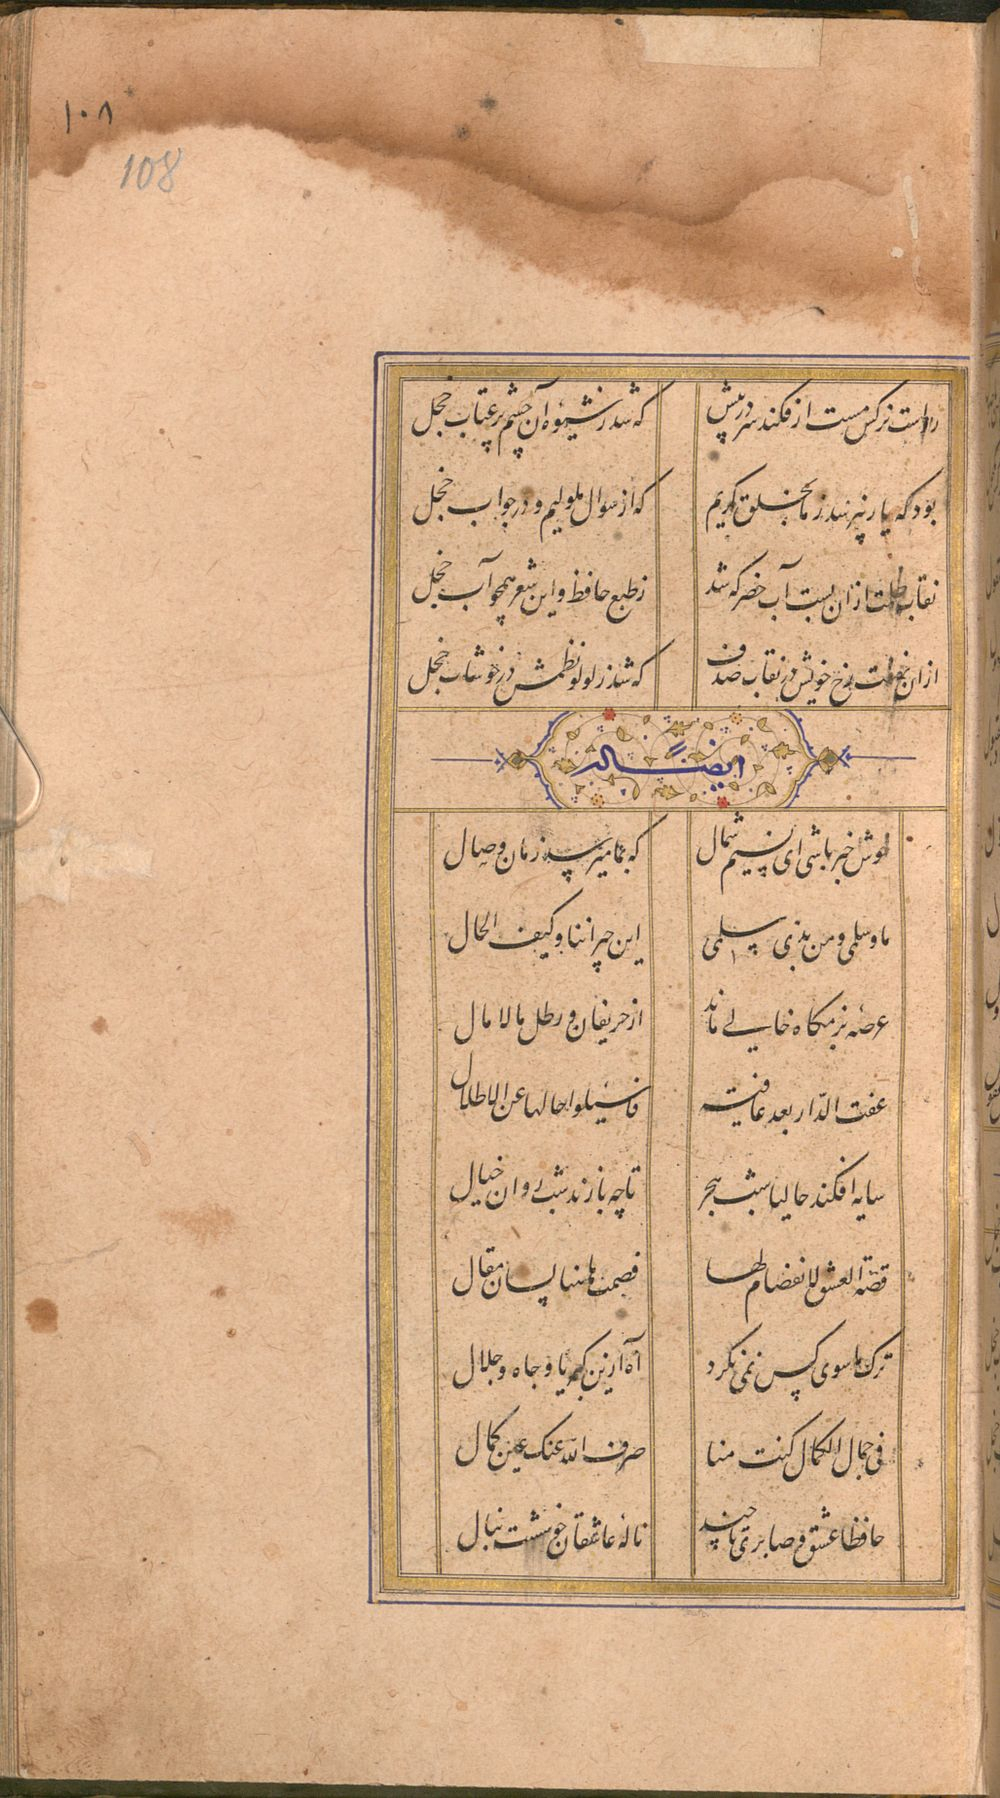 ۱۰۸
108
رواست نرکس مست ار فکند سر در پیش که شد ز شیوه آن چشم پر عتاب خجل
بود که یار نپرسد ز ما بخلق کریم که از سوال ملولیم و در جواب خجل
نقاب ظلمت ازان بست آب خضر که شد ز طبع حافظ و این شعر همچو آب خجل
ازان نهفت رخ خویش در نقاب صدف که شد ز لولو نظمش در خوشاب خجل
ایضاً له
خوش خبر باشی ای نسیم شمال که بما میرسد زمان وصال
ما و سلمی و من بذی سلمی این جیراننا و کیف الحال
عرصه بزمکاه خالی ماند از حریفان و رطل مالامال
عفت الدّار بعد عافیته فاسئلوا حالها عن الاطلال
سایه افکند حالیا شب هجر تا چه بازند شب روان خیال
قصّة العشق لا انفصام لها فصمت هاهنا لسان مقال
ترک ما سوی کس نمی نکرد آه ازین کبریا و جاه و جلال
فی جمال الکمال کنت منا صرف الله عنک عین کمال
حافظا عشق و صابری تا چند ناله عاشقان خوشست بنال